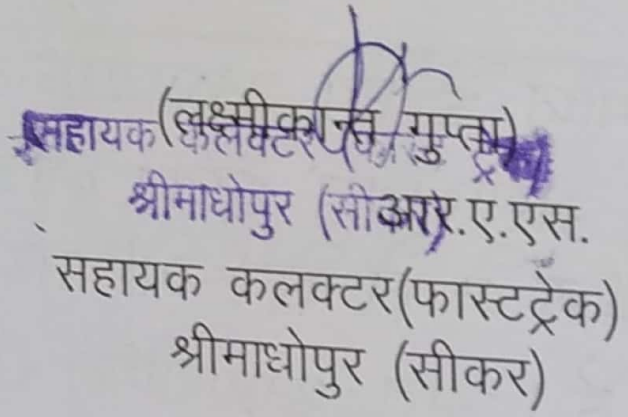 (लक्ष्मीकान्त गुप्ता)
सहायक कलक्टर (फास्ट ट्रेक)
श्रीमाधोपुर (सीकर)
आर.ए.एस.
सहायक कलक्टर(फास्टट्रेक)
श्रीमाधोपुर (सीकर)